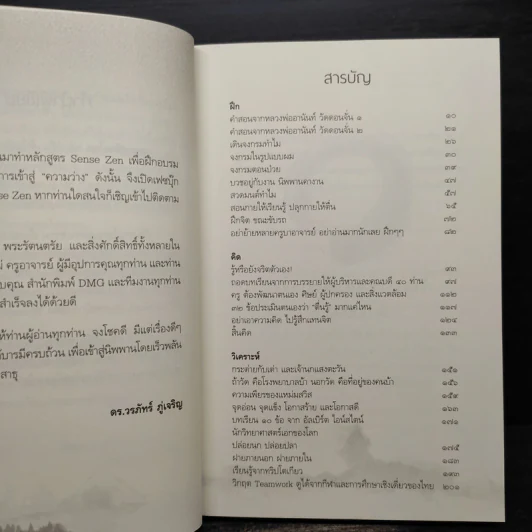 มาทำหลักสูตร Sense Zen เพื่อฝึกอบรม
การเข้าสู่ "ความว่าง" ดังนั้น จึงเปิดเฟซบุ๊ก
se Zen หากท่านใดสนใจก็เชิญเข้าไปติดตาม
พระรัตนตรัย และสิ่งศักดิ์สิทธิ์ทั้งหลายใน
ครูอาจารย์ ผู้มีอุปการคุณทุกท่าน และท่าน
บคุณ สำนักพิมพ์ DMG และทีมงานทุกท่าน
สำเร็จลงได้ด้วยดี
ห้ท่านผู้อ่านทุกท่าน จงโชคดี มีแต่เรื่องดีๆ
บารมีครบถ้วน เพื่อเข้าสู่นิพพานโดยเร็วพลัน
สาธุ
ดร.วรภัทร์ ภู่เจริญ
สารบัญ
ฝึก
คำสอนจากหลวงพ่ออานันท์ วัดดอนจั่น ๑ ๑๐
คำสอนจากหลวงพ่ออานันท์ วัดดอนจั่น ๒ ๒๑
เดินจงกรมทำไม ๒๖
จงกรมในรูปแบบผม ๓๐
จงกรมตอนป่วย ๓๙
บวชอยู่กับงาน นิพพานคางาน ๔๗
สวดมนต์ทำไม ๕๗
สอนกายให้เรียนรู้ ปลุกกายให้ตื่น ๖๕
ฝึกจิต ขณะขับรถ ๗๒
อย่าย้ายหลายครูบาอาจารย์ อย่าอ่านมากนักเลย ฝึกๆๆ ๘๒
คิด
รู้หรือยังจริตตัวเอง! ๙๓
ถอดบทเรียนจากการบรรยายให้ผู้บริหารและคณบดี ๔๐ ท่าน ๙๗
ครู ต้องพัฒนาตนเอง ศิษย์ ผู้ปกครอง และสิ่งแวดล้อม ๑๑๒
๓๒ ข้อประเมินตนเองว่า "ตื่นรู้" มากแค่ไหน ๑๑๗
อย่าเอาความคิด ไปรู้สึกแทนจิต ๑๒๔
สิ้นคิด ๑๓๓
วิเคราะห์
กระต่ายกับเต่า และเจ้านกแสงตะวัน ๑๕๑
ถ้าวัด คือโรงพยาบาลบ้า นอกวัด คือที่อยู่ของคนบ้า ๑๕๖
ความเพียรของแหม่มสวิส ๑๕๙
จุดอ่อน จุดแข็ง โอกาสร้าย และโอกาสดี ๑๖๓
บทเรียน ๑๐ ข้อ จาก อัลเบิร์ต ไอน์สไตน์ ๑๗๑
นักวิทยาศาสตร์เอกของโลก
ปล่อยนก ปล่อยปลา ๑๗๕
ฝายภายนอก ฝายภายใน ๑๘๓
เรียนรู้จากทริปโตเกียว ๑๙๓
วิกฤต Teamwork ดูได้จากกีฬาและการศึกษาเชิงเดี่ยวของไทย ๒๐๑